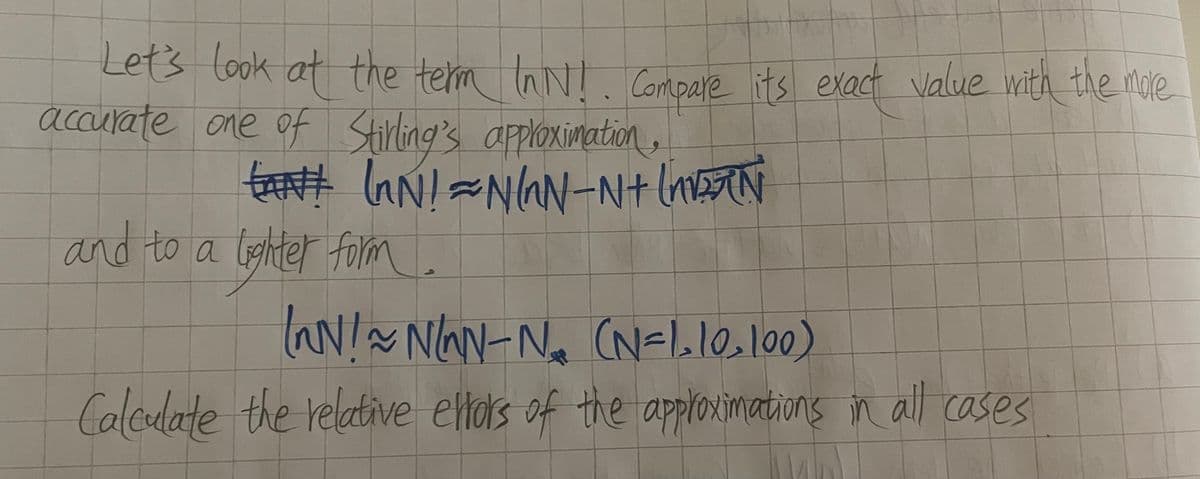 Let's look at the term lnN!. Compare its exact value with the more
accurate one of Stirling's approximation,
lnN!≈NlnN-N+ln√2πN
and to a lighter form.
lnN!≈NlnN-N. (N=1,10,100)
Calculate the relative errors of the approximations in all cases